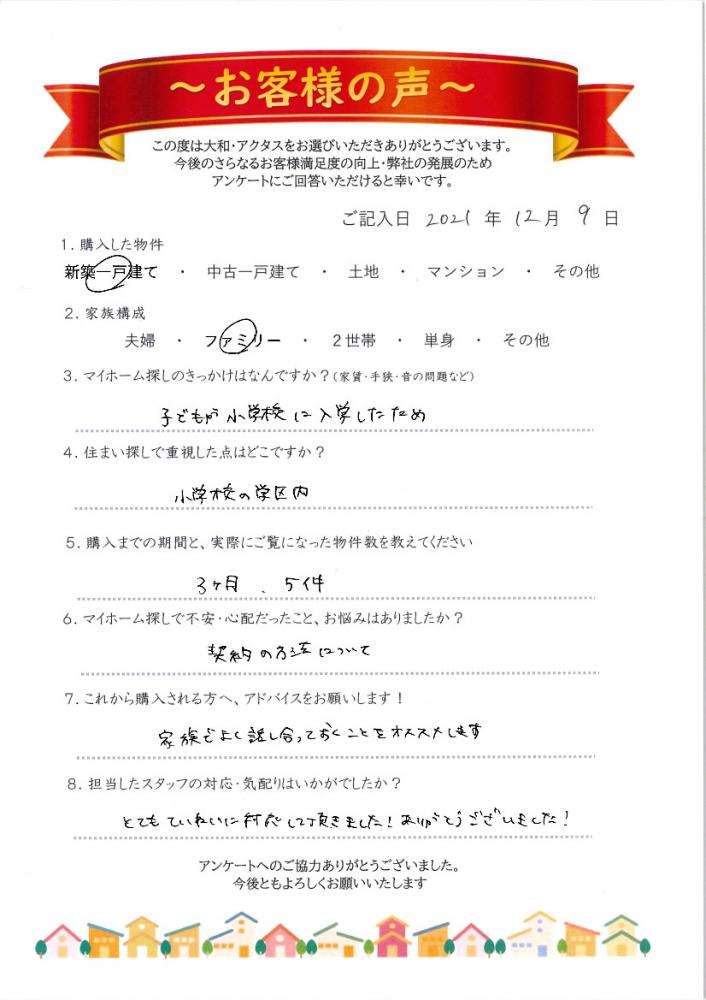 ～お客様の声～
この度は大和・アクタスをお選びいただきありがとうございます。
今後のさらなるお客様満足度の向上・弊社の発展のため
アンケートにご回答いただけると幸いです。
ご記入日 2021 年 12月 9 日
1. 購入した物件
新築一戸建て ・ 中古一戸建て ・ 土地 ・ マンション ・ その他
2. 家族構成
夫婦 ・ ファミリー ・ 2世帯 ・ 単身 ・ その他
3. マイホーム探しのきっかけはなんですか？（家賃・手狭・音の問題など）
子どもが小学校に入学したため
4. 住まい探しで重視した点はどこですか？
小学校の学区内
5. 購入までの期間と、実際にご覧になった物件数を教えてください
3ヶ月、5件
6. マイホーム探しで不安・心配だったこと、お悩みはありましたか？
契約の方法について
7. これから購入される方へ、アドバイスをお願いします！
家族でよく話し合っておくことをオススメします
8. 担当したスタッフの対応・気配りはいかがでしたか？
とてもていねいに対応して頂きました！ありがとうございました！
アンケートへのご協力ありがとうございました。
今後ともよろしくお願いいたします